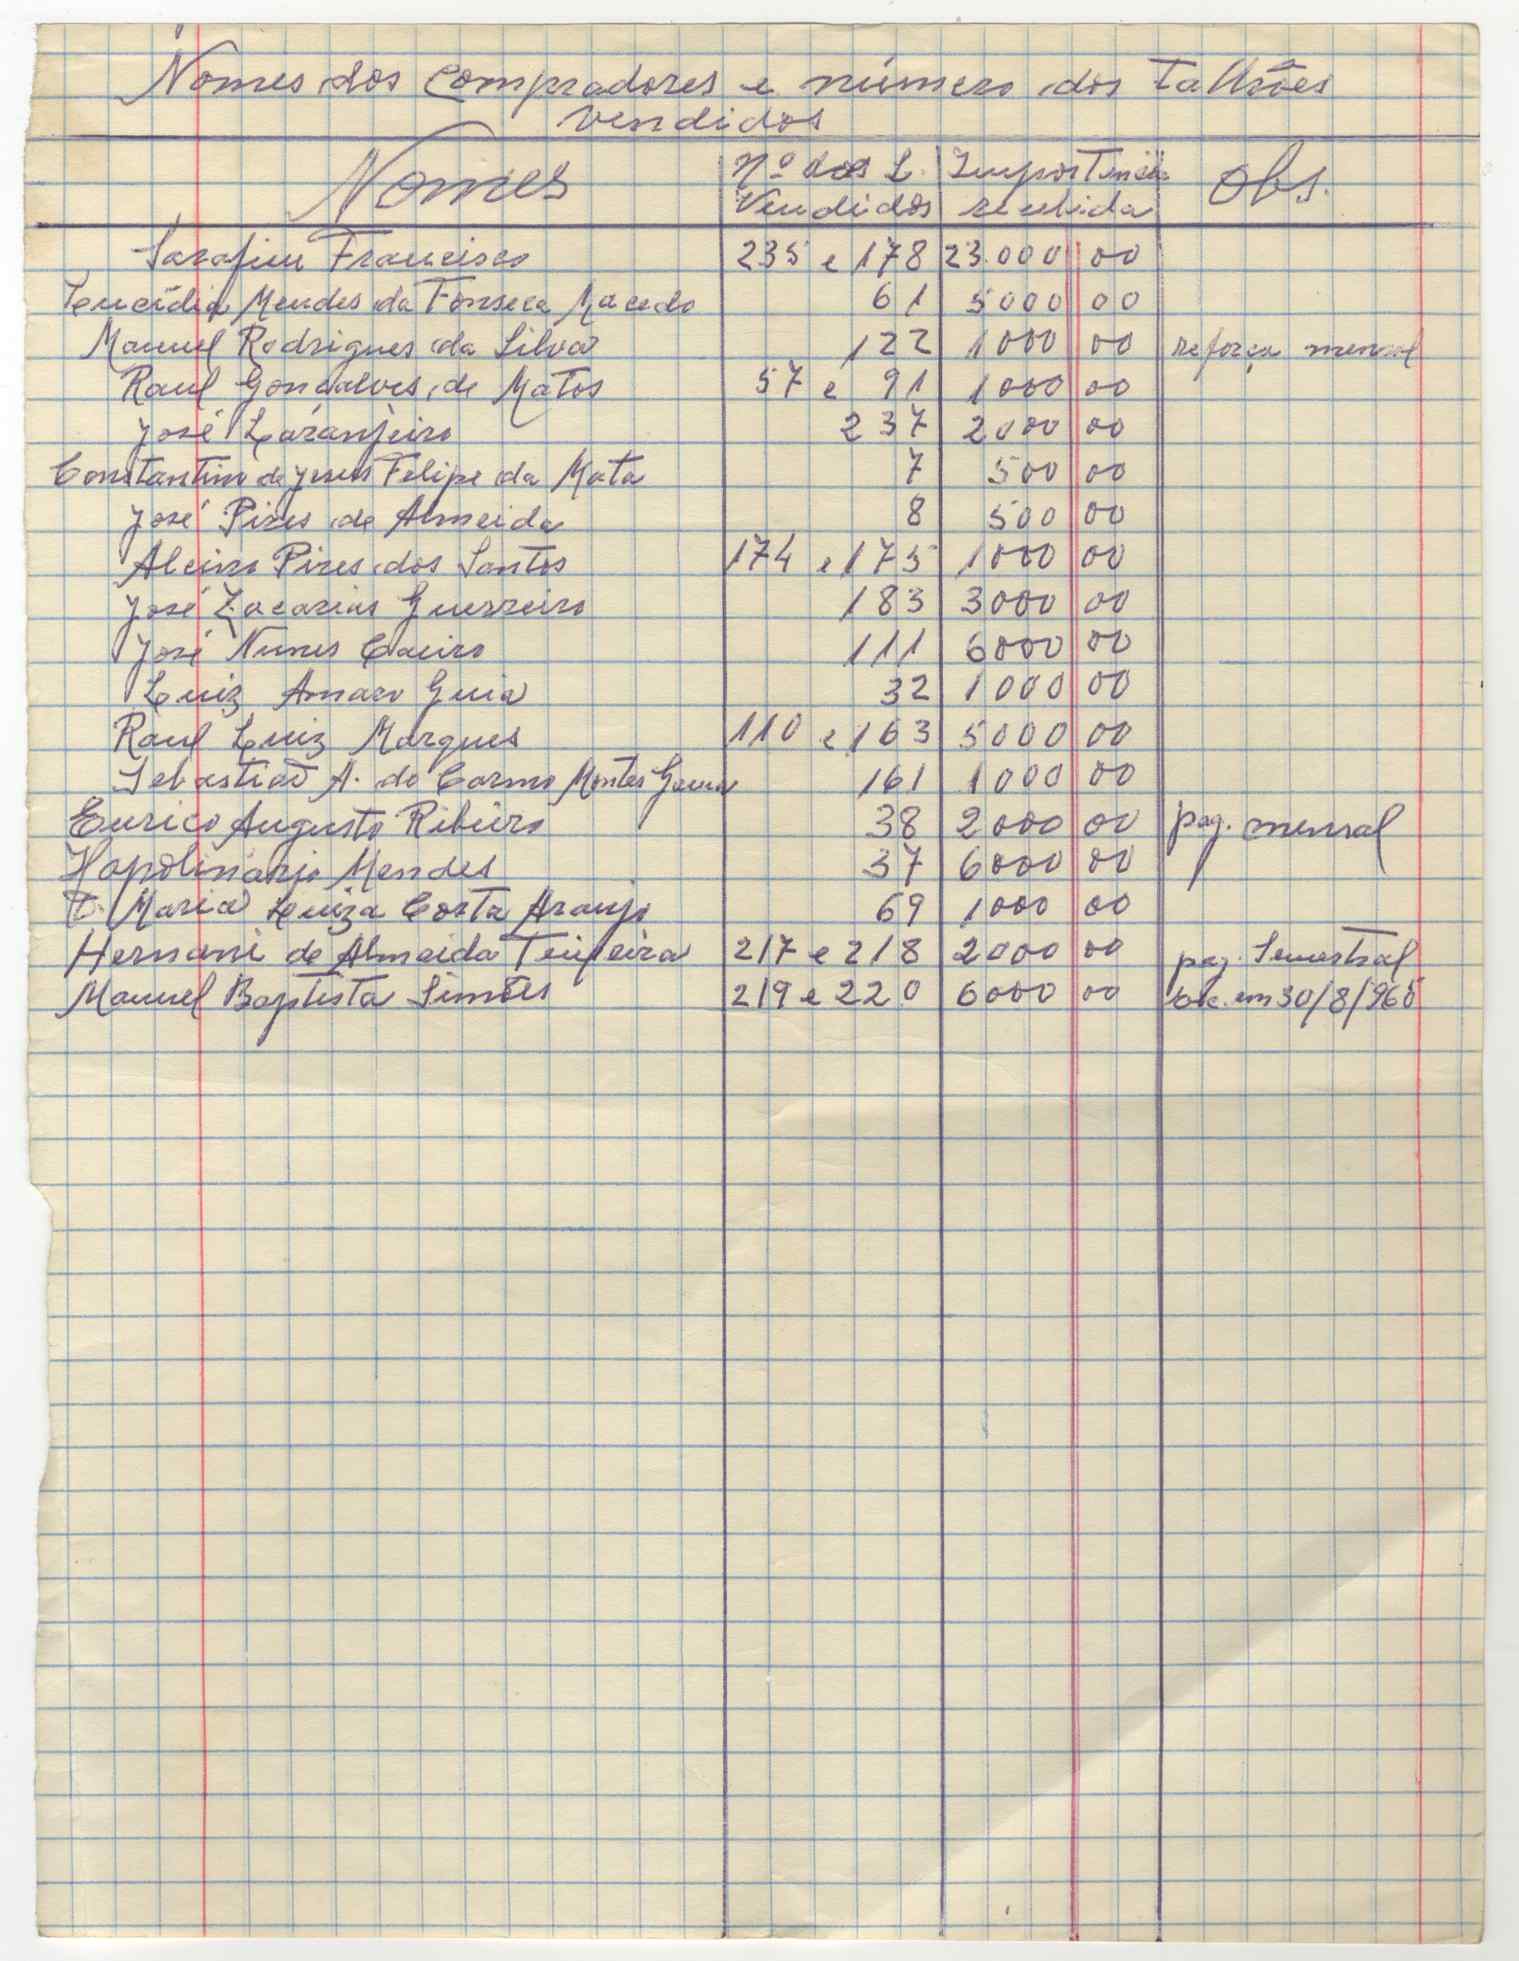 Nomes dos Compradores e número dos Talhões
Vendidos
Nomes Nº dos L. Vendidos Importância recebida Obs.
Sarafim Francisco 235 e 178 23.000 00
Mendes da Fonseca Macedo 61 5000 00
Manuel Rodrigues da Silva 122 1000 00 reforça mensal
Raul Gonçalves de Matos 57 e 91 1000 00
José Laranjeiro 237 2000 00
Constantino de Jesus Felipe da Mata 7 500 00
José Pires de Almeida 8 500 00
Alcino Pires dos Santos 174 e 175 1000 00
José Zacarias Guerreiro 183 3000 00
José Nunes Caeiro 111 6000 00
Luiz Amaro Guia 32 1000 00
Raul Luiz Marques 110 e 163 5000 00
Sebastião A. do Carmo Montes 161 1000 00
Eurico Augusto Ribeiro 38 2000 00 pag. mensal
Hapolinário Mendes 37 6000 00
D. Maria Luiza Costa Araujo 69 1000 00
Hernani de Almeida Teixeira 217 e 218 2000 00 pag. Semestral
Manuel Baptista Simões 219 e 220 6000 00 em 30/8/965